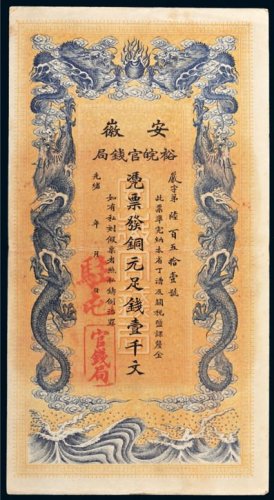 安徽
裕皖官錢局
嚴字第陸百五拾壹號
此票準完納本省丁漕及關稅鹽課釐金
憑票發銅元足錢壹千文
如有私刻假票者照私鑄例治罪
光緒 年 月 日
官錢局